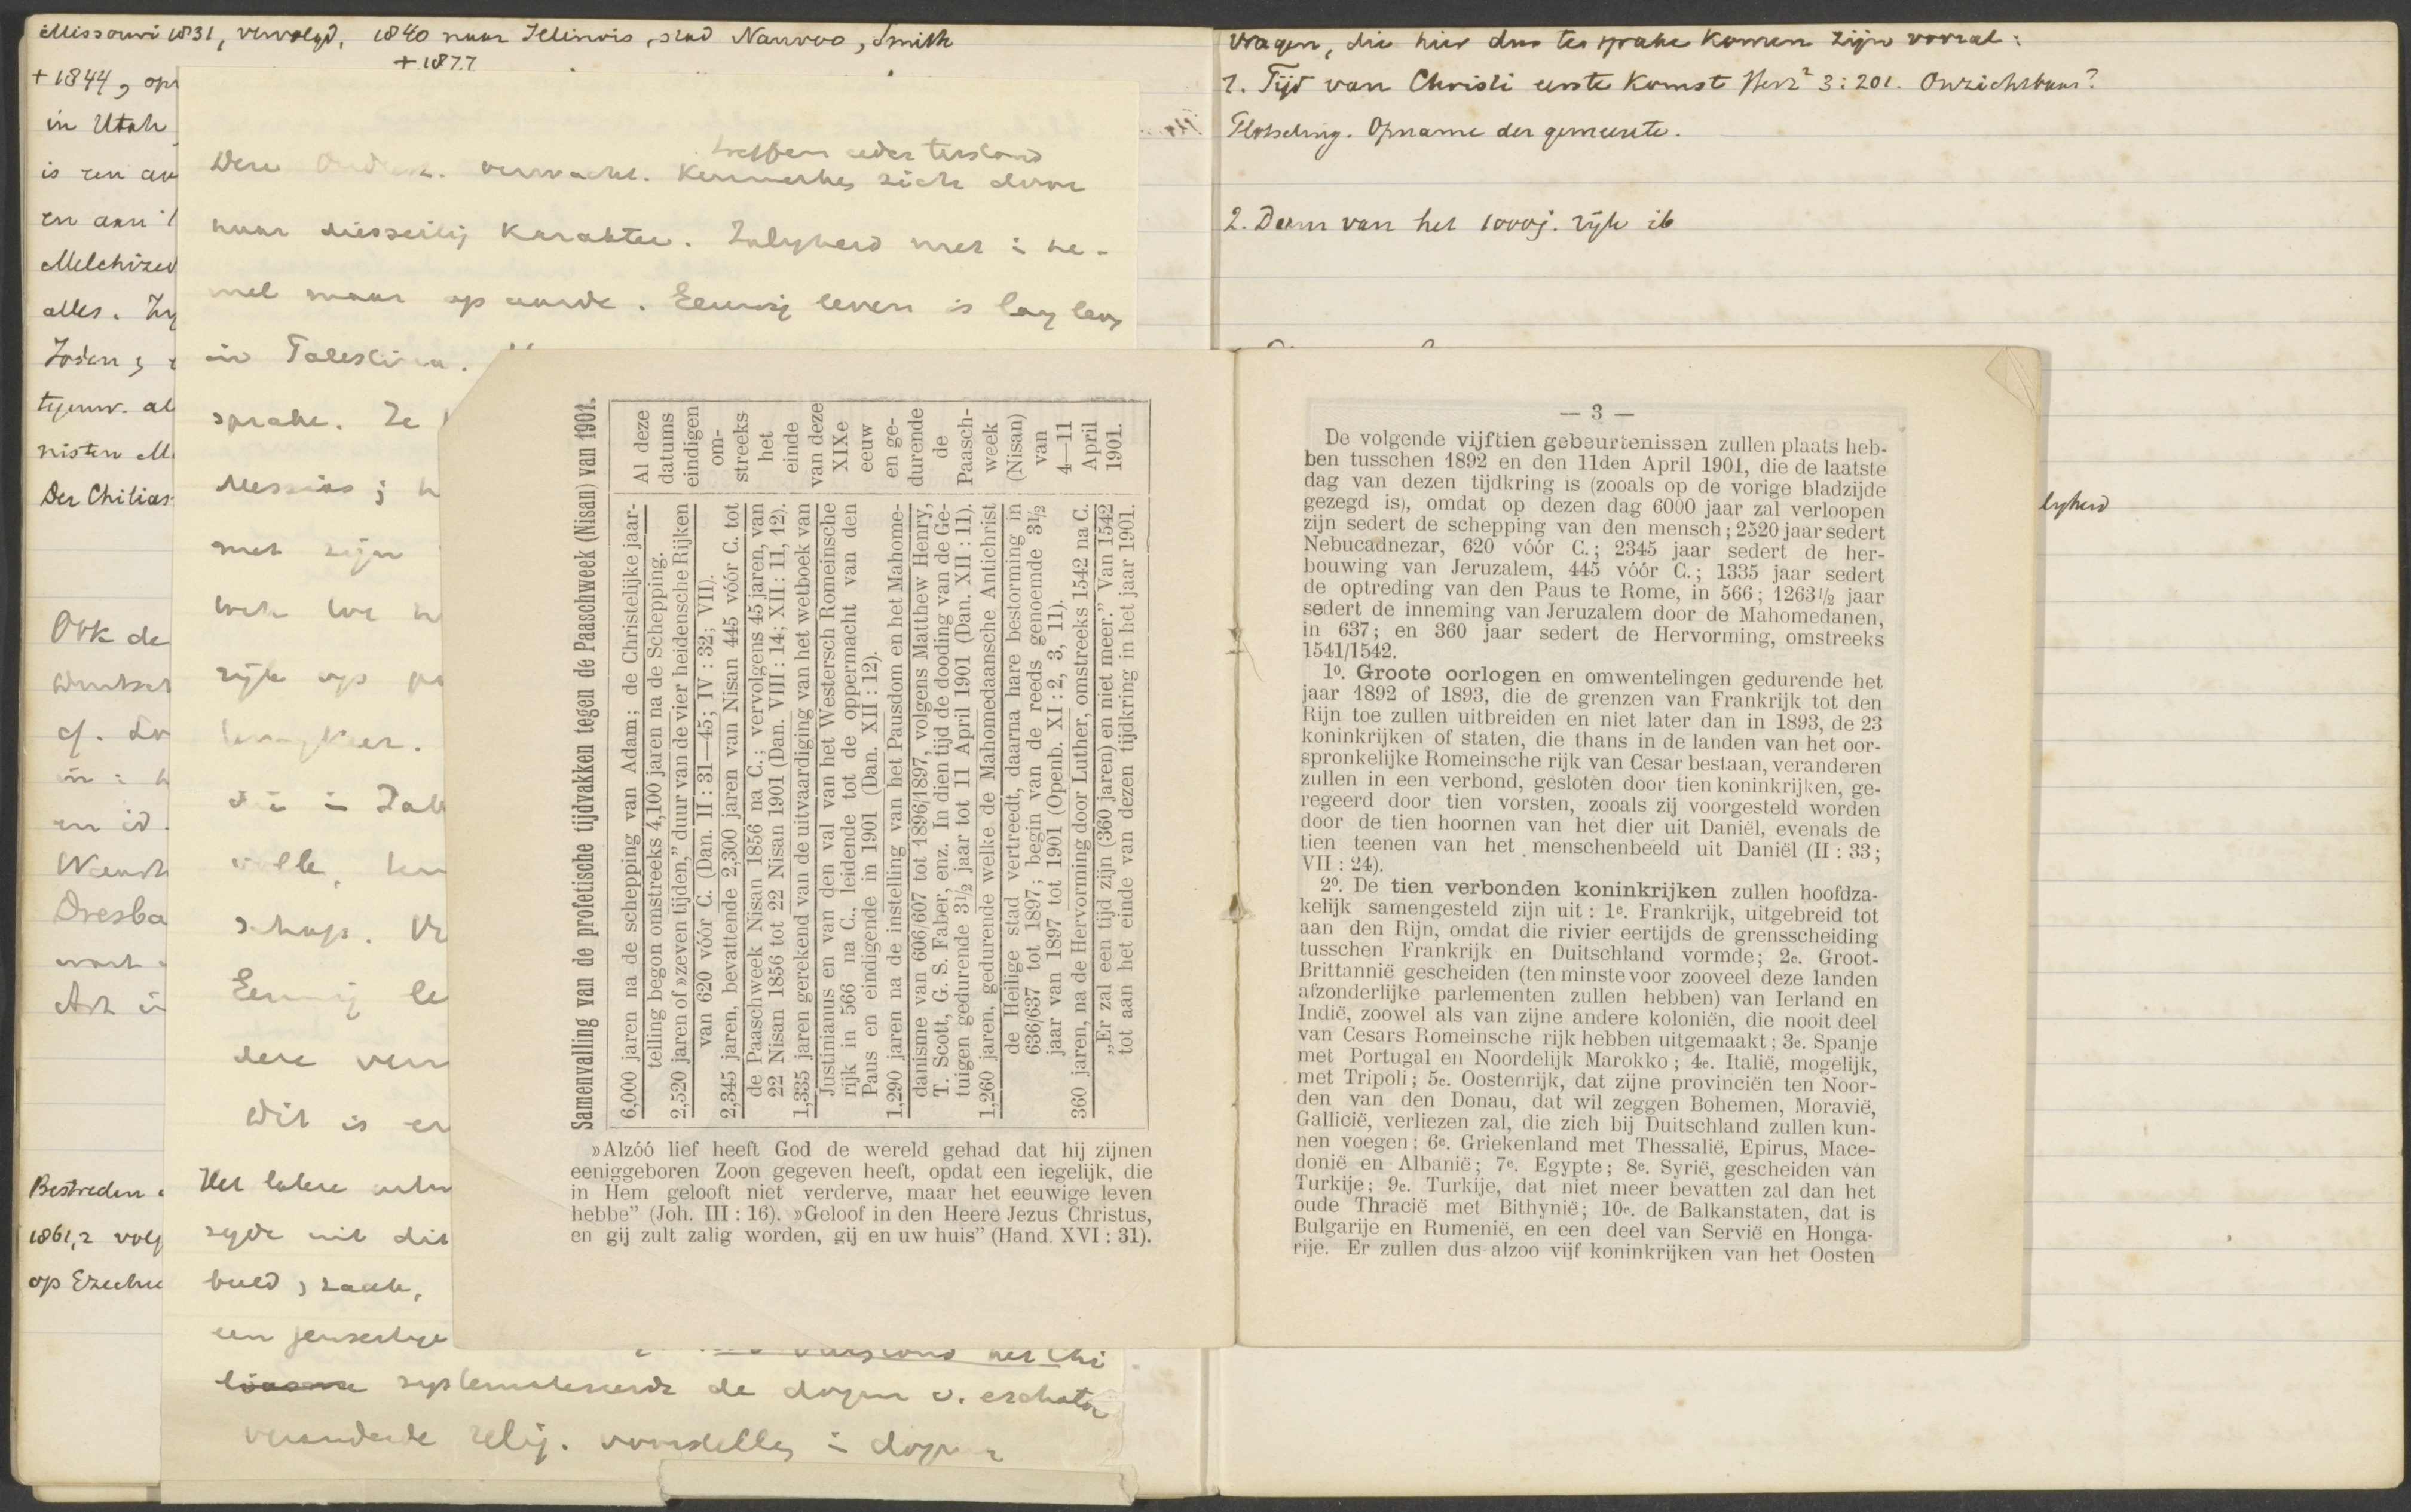 Missouri 1831, vervolgd, 1840 naar Illinois, stad Nauvoo, Smith
+ 1877
+ 1844,
in Utah
is een
en aan
Melchized
alles.
Joden;
tegenw. al
nisten M
Der Chilias
Ook de
cf.
en id.
Dresba
Bestreden
1861,2 volg
op Ezechie
verwacht. Kenmerken zich door
haar diesseitig karakter. Zaligheid niet i he-
mel maar op aarde. Eeuwig leven is lang leven
in Palestina.
sprake. Ze
Messias;
met zijn
rijk op
volk,
schap.
Eeuwig le
dere ver
Dit is
Het latere
zegde uit dit
beeld, zaak,
een jenseitige
verstond het Chi
liasme systematiseerde de dogm v. eschato
veranderde relig. voorstelling i dogma
Samenvalling van de profetische tijdvakken tegen de Paaschweek (Nisan) van 1901.
6,000 jaren na de schepping van Adam; de Christelijke jaar-
telling begon omstreeks 4,100 jaren na de Schepping.
2,520 jaren of »zeven tijden,” duur van de vier heidensche Rijken
van 620 vóór C. (Dan. II : 31—45; IV : 32; VII).
2,345 jaren, bevattende 2,300 jaren van Nisan 445 vóór C. tot
de Paaschweek Nisan 1856 na C.; vervolgens 45 jaren, van
22 Nisan 1856 tot 22 Nisan 1901 (Dan. VIII : 14; XII : 11, 12).
1,335 jaren gerekend van de uitvaardiging van het wetboek van
Justinianus en van den val van het Westersch Romeinsche
rijk in 566 na C., leidende tot de oppermacht van den
Paus en eindigende in 1901 (Dan. XII : 12).
1,290 jaren na de instelling van het Pausdom en het Mahome-
danisme van 606/607 tot 1896/1897, volgens Matthew Henry,
T. Scott, G. S. Faber, enz. In dien tijd de dooding van de Ge-
tuigen gedurende 3½ jaar tot 11 April 1901 (Dan. XII : 11).
1,260 jaren, gedurende welke de Mahomedaansche Antichrist
de Heilige stad vertreedt, daarna hare bestorming in
636/637 tot 1897; begin van de reeds genoemde 3½
jaar van 1897 tot 1901 (Openb. XI : 2, 3, 11).
360 jaren, na de Hervorming door Luther, omstreeks 1542 na C.
„Er zal een tijd zijn (360 jaren) en niet meer.” Van 1542
tot aan het einde van dezen tijdkring in het jaar 1901.
Al deze
datums
eindigen
om-
streeks
het
einde
van deze
XIXe
eeuw
en ge-
durende
de
Paasch-
week
(Nisan)
van
4—11
April
1901.
»Alzóó lief heeft God de wereld gehad dat hij zijnen
eeniggeboren Zoon gegeven heeft, opdat een iegelijk, die
in Hem gelooft niet verderve, maar het eeuwige leven
hebbe” (Joh. III : 16). »Geloof in den Heere Jezus Christus,
en gij zult zalig worden, gij en uw huis” (Hand. XVI : 31).
Vragen, die hier dus ter sprake komen zijn vooral:
1. Tijd van Christi eerste komst Herz² 3:201. Onzichtbaar?
Plotseling. Opname der gemeente.
2. Duur van het 1000j. rijk ib
lijkheid
— 3 —
De volgende vijftien gebeurtenissen zullen plaats heb-
ben tusschen 1892 en den 11den April 1901, die de laatste
dag van dezen tijdkring is (zooals op de vorige bladzijde
gezegd is), omdat op dezen dag 6000 jaar zal verloopen
zijn sedert de schepping van den mensch; 2520 jaar sedert
Nebucadnezar, 620 vóór C.; 2345 jaar sedert de her-
bouwing van Jeruzalem, 445 vóór C.; 1335 jaar sedert
de optreding van den Paus te Rome, in 566; 1263½ jaar
sedert de inneming van Jeruzalem door de Mahomedanen,
in 637; en 360 jaar sedert de Hervorming, omstreeks
1541/1542.
1º. Groote oorlogen en omwentelingen gedurende het
jaar 1892 of 1893, die de grenzen van Frankrijk tot den
Rijn toe zullen uitbreiden en niet later dan in 1893, de 23
koninkrijken of staten, die thans in de landen van het oor-
spronkelijke Romeinsche rijk van Cesar bestaan, veranderen
zullen in een verbond, gesloten door tien koninkrijken, ge-
regeerd door tien vorsten, zooals zij voorgesteld worden
door de tien hoornen van het dier uit Daniël, evenals de
tien teenen van het menschenbeeld uit Daniël (II : 33;
VII : 24).
2º. De tien verbonden koninkrijken zullen hoofdza-
kelijk samengesteld zijn uit : 1e. Frankrijk, uitgebreid tot
aan den Rijn, omdat die rivier eertijds de grensscheiding
tusschen Frankrijk en Duitschland vormde; 2e. Groot-
Brittannië gescheiden (ten minste voor zooveel deze landen
afzonderlijke parlementen zullen hebben) van Ierland en
Indië, zoowel als van zijne andere koloniën, die nooit deel
van Cesars Romeinsche rijk hebben uitgemaakt; 3e. Spanje
met Portugal en Noordelijk Marokko; 4e. Italië, mogelijk,
met Tripoli; 5e. Oostenrijk, dat zijne provinciën ten Noor-
den van den Donau, dat wil zeggen Bohemen, Moravië,
Gallicië, verliezen zal, die zich bij Duitschland zullen kun-
nen voegen; 6e. Griekenland met Thessalië, Epirus, Mace-
donië en Albanië; 7e. Egypte; 8e. Syrië, gescheiden van
Turkije; 9e. Turkije, dat niet meer bevatten zal dan het
oude Thracië met Bithynië; 10e. de Balkanstaten, dat is
Bulgarije en Rumenië, en een deel van Servië en Honga-
rije. Er zullen dus alzoo vijf koninkrijken van het Oosten